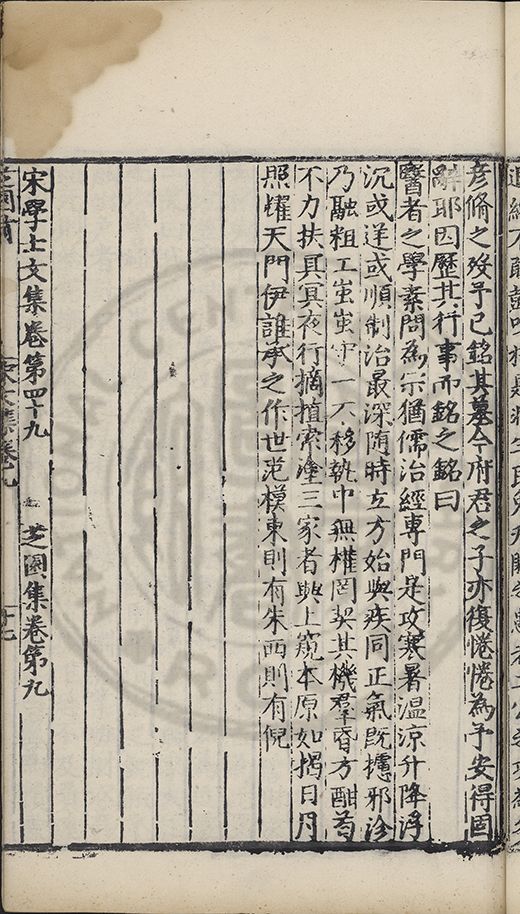 彦脩之殁予已銘其墓今府君之子亦復惓惓為予安得固
辭耶因歷其行事而銘之銘曰
醫者之學素問為宗猶儒治經專門是攻寒暑温涼升降浮
沉或逆或順制治最深随時立方始與疾同正氣既攄邪沴
乃融粗工蚩蚩守一不移執中無權罔契其機羣昏方酣苟
不力扶具冥夜行摘植索塗三家者興上窺本原如揭日月
照耀天門伊誰承之作世范模東則有朱西則有倪
宋學士文集卷第四十九 芝園集卷第九